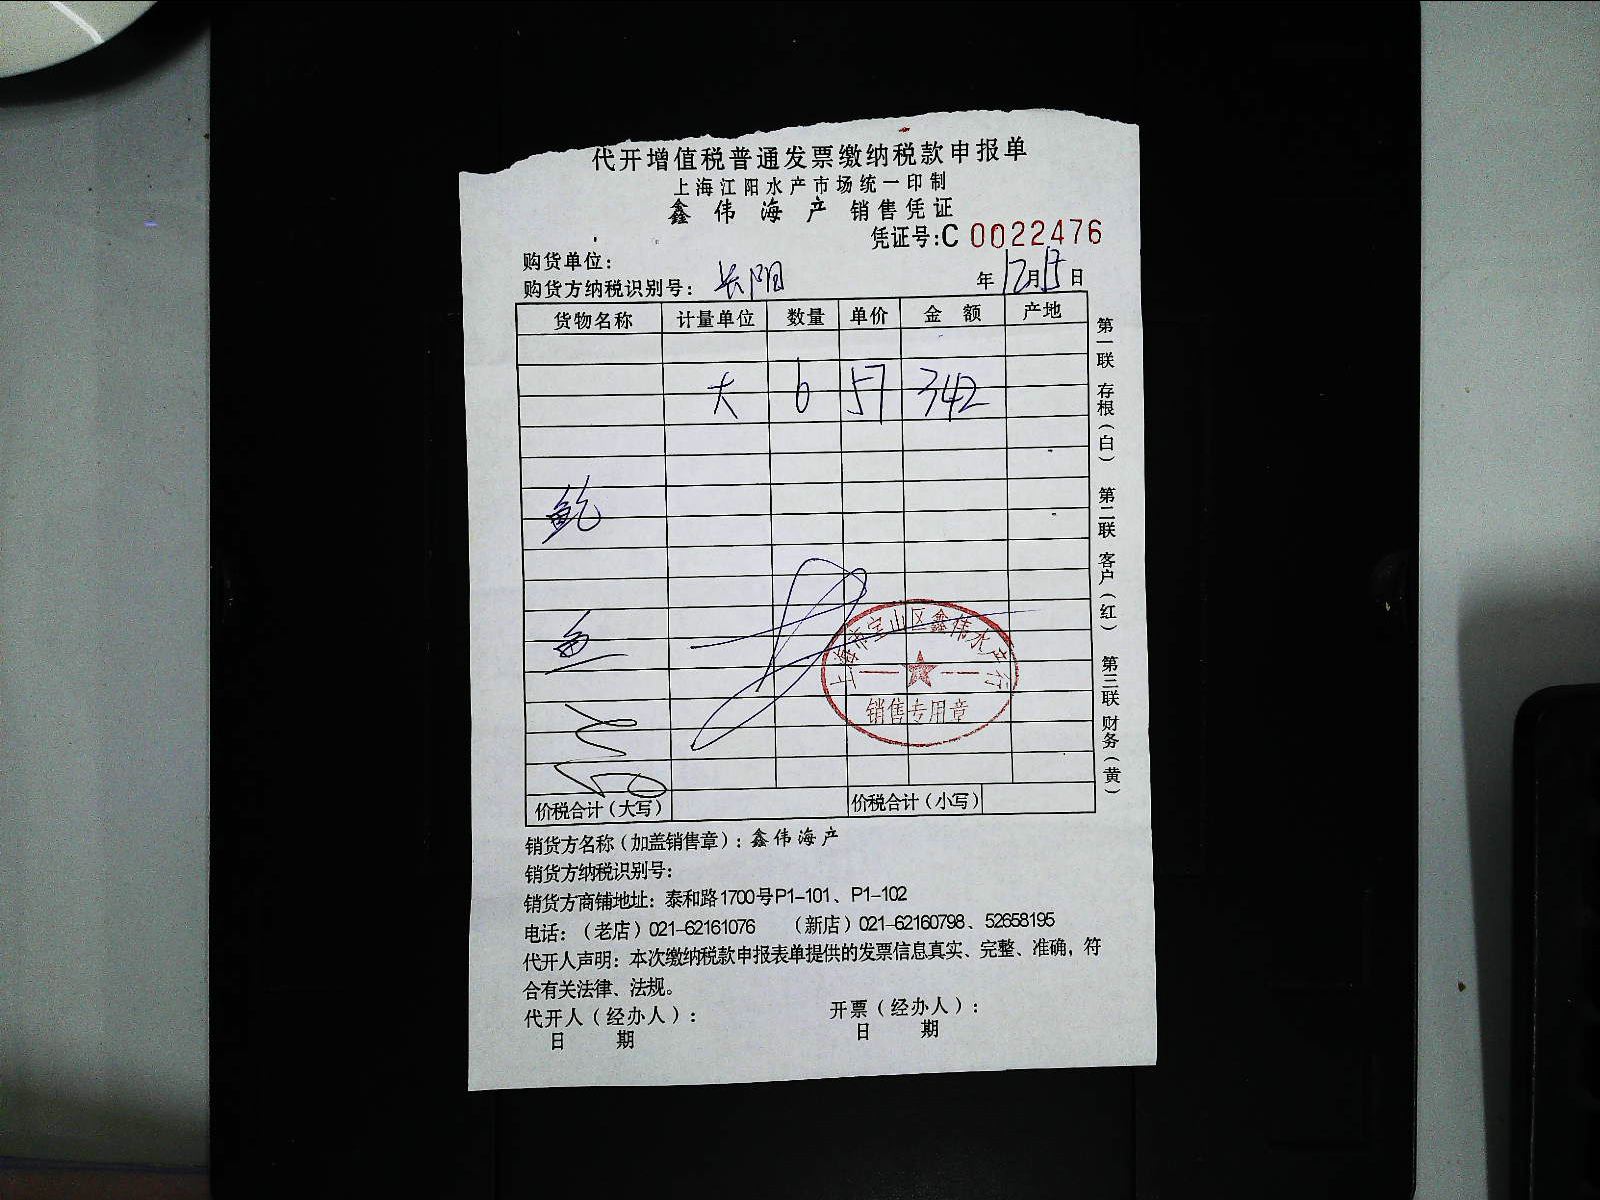 代开增值税普通发票缴纳税款申报单
上海江阳水产市场统一印制
鑫伟海产 销售凭证
凭证号:C 0022476
购货单位:
购货方纳税识别号: 长阳 年12月15日
货物名称 计量单位 数量 单价 金额 产地
大 6 57 342
鲍
鱼
上海市宝山区鑫伟水产行
销售专用章
价税合计(大写) 价税合计(小写)
销货方名称(加盖销售章):鑫伟海产
销货方纳税识别号:
销货方商铺地址:泰和路1700号P1-101、P1-102
电话:(老店)021-62161076 (新店)021-62160798、52658195
代开人声明:本次缴纳税款申报表单提供的发票信息真实、完整、准确,符
合有关法律、法规。
代开人(经办人): 开票(经办人):
日期 日期
第一联 存根(白) 第二联 客户(红) 第三联 财务(黄)